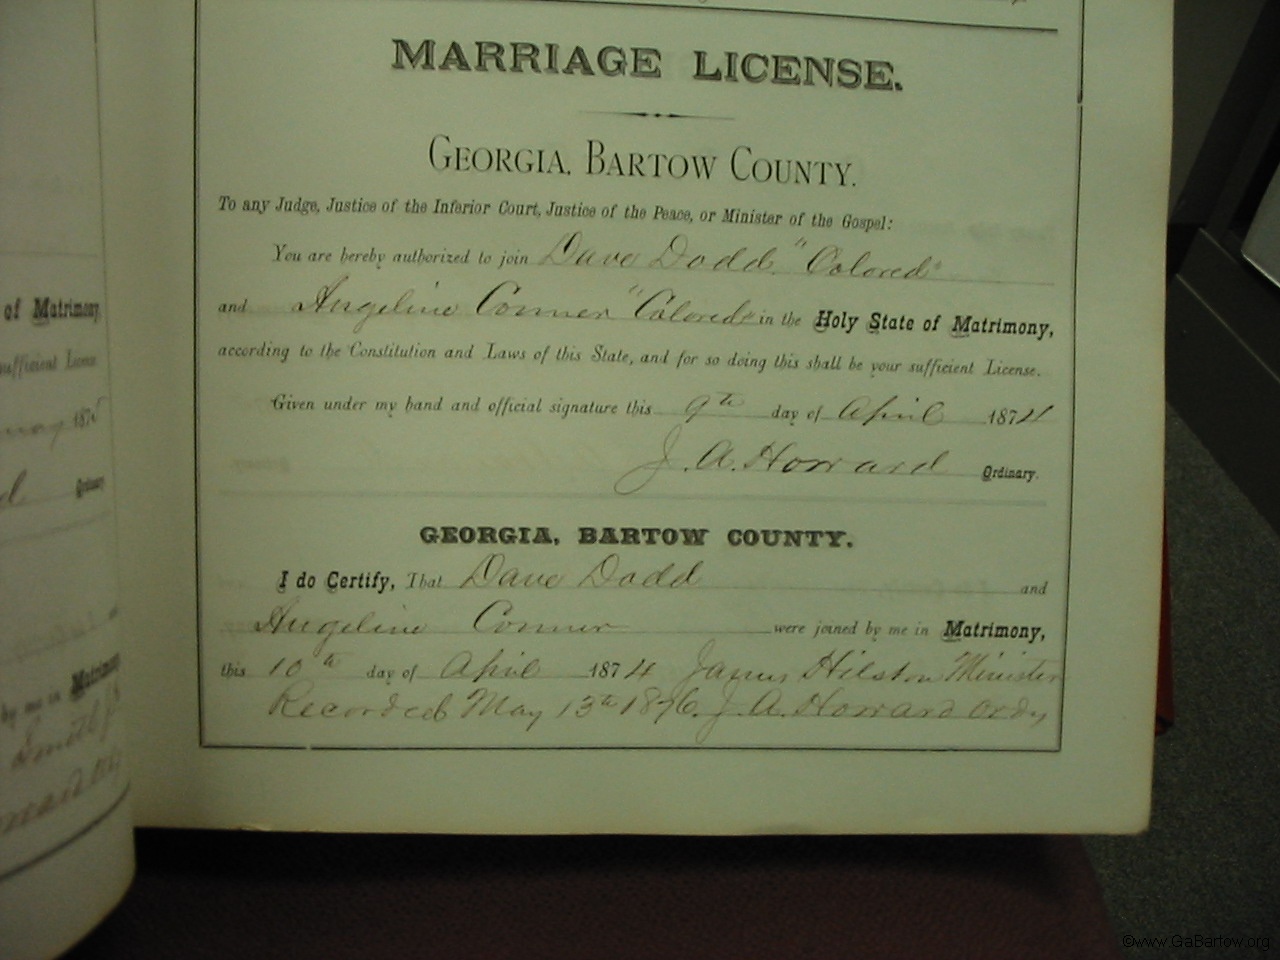 MARRIAGE LICENSE.
GEORGIA, BARTOW COUNTY.
To any Judge, Justice of the Inferior Court, Justice of the Peace, or Minister of the Gospel:
You are hereby authorized to join Dave Dodd "Colored"
and Angeline Conner "Colored" in the Holy State of Matrimony,
according to the Constitution and Laws of this State, and for so doing this shall be your sufficient License.
Given under my hand and official signature this 9th day of April 1874
J. A. Howard Ordinary.
GEORGIA, BARTOW COUNTY.
I do Certify, That Dave Dodd and
Angeline Conner were joined by me in Matrimony,
this 10th day of April 1874 James Hilston Minister
Recorded May 13th 1876. J. A. Howard Ordy
of Matrimony,
sufficient License
187
Ordinary
by me in Matrimony
©www.GaBartow.org